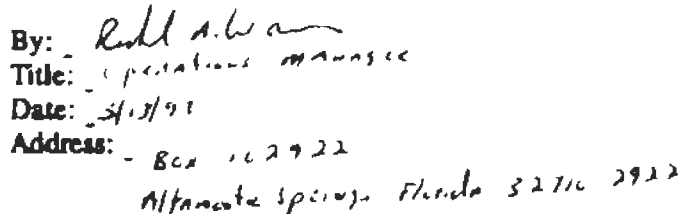 By:
Title: Operations Manager
Date:
Address: Box 162922
Altamonte Springs Florida 32716 2922